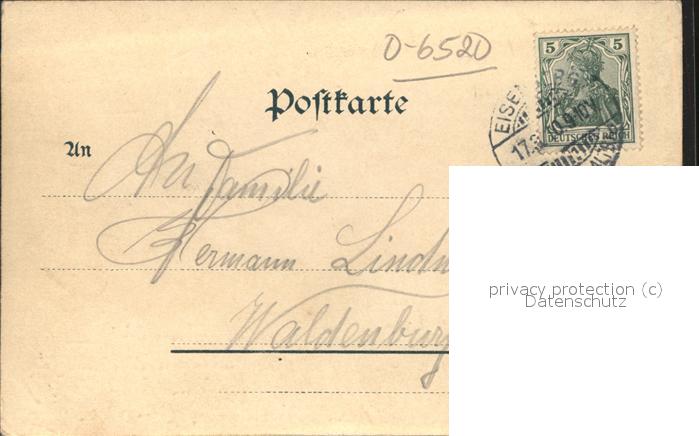 D-6520
5 5
DEUTSCHES REICH
EISEN
Postkarte
An
An Familie
Hermann Lindn
Waldenburg
privacy protection (c)
Datenschutz